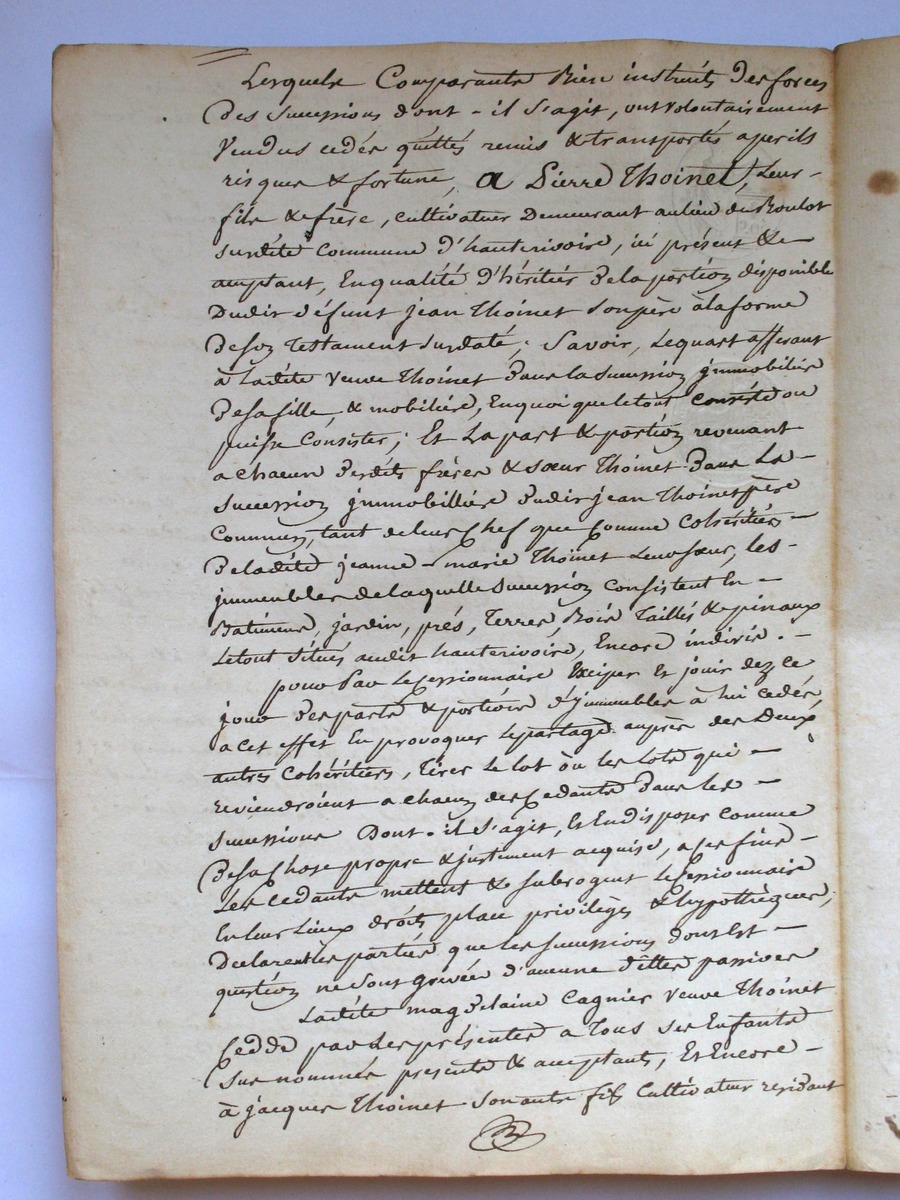 Lesquels Comparants Bien instruits des forces
des successions dont - il s'agit, ont volontairement
Vendus cedés quittés remis & transportés a perils
risques & fortune, a Pierre Thoinet, Leur -
fils & frère, cultivateur Demeurant au lieu du Boulot
surdite Commune d'hauterivoire, ici présent &c -
acceptant, En qualité d'héritier de la portion disponible
Dudit défunt jean Thoinet son père à la forme
De son Testament surdaté; Savoir, Le quart afférant
à Ladite Veuve Thoinet Dans la succession jmmobiliére
De sa fille & mobiliére, En quoi que le tout consiste ou
puisse Consister; Et La part & portion revenant
a chacun desdits frères & sœur Thoinet Dans La -
Succession jmmobilliére Dudit jean Thoinet père
Commun, tant de leur Chef que Comme Cohéritiers -
De ladite jeanne - marie Thoinet Leur sœur, les -
jmmeubles de laquelle succession Consistent En -
Batiment, jardin, prés, Terres, Bois Taillis & pinaux
Le tout situés audit hauterivoire, Encore indivis. -
pour Par Le Cessionnaire Exciper Et jouir dez ce
jour des parts & portions d'jmmeubles à lui cedés,
a cet effet En provoquer Le partage auprès des Deux
autres Cohéritiers, Tirer Le lot où les Lots qui -
reviendroient a chacun des Cedants Dans Les -
successions Dont - il s'agit, Et En disposer Comme
De sa Chose propre & justement acquise, a ses fins -
Les Cedants mettent & subrogent Le Cessionnaire
En leur Lieux droits place privilèges & hypothèques;
Declarent les parties que les successions dont Est -
question ne sont grevée d'aucune dettes passives
Ladite magdelaine Cagnier Veuve Thoinet
Cedde par Les présentes a Tous ses Enfants
sus nommés presents & acceptants, Et Encore -
à jacques Thoinet son autre fils Cultivateur residant